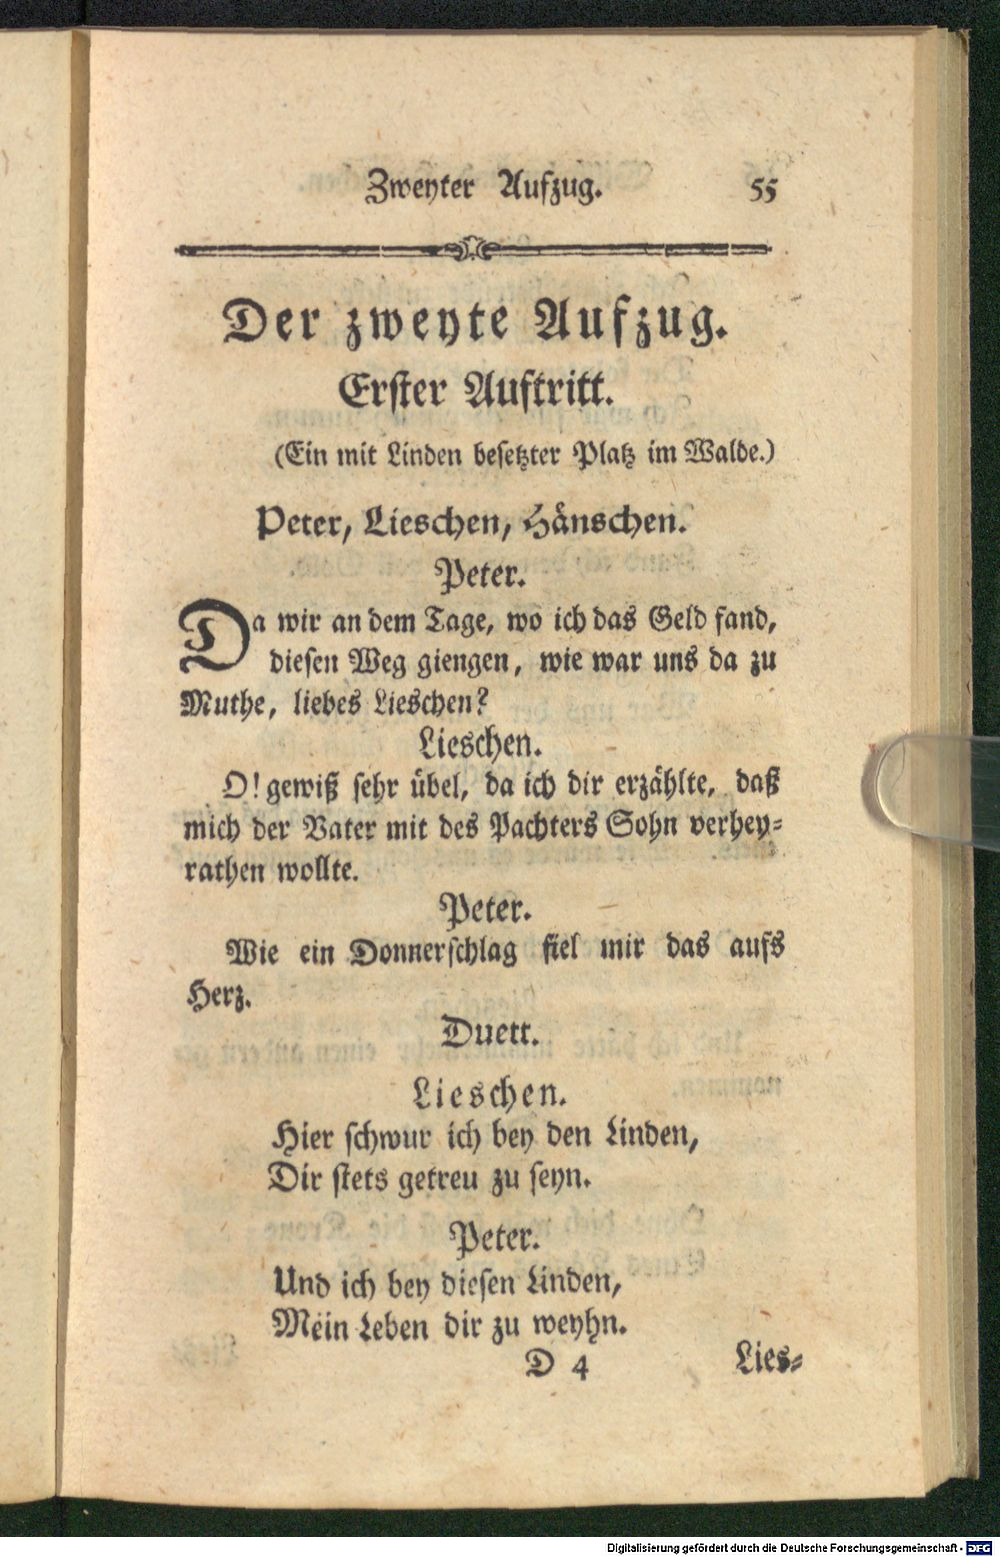 Zweyter Aufzug. 55
Der zweyte Aufzug.
Erster Auftritt.
(Ein mit Linden besetzter Platz im Walde.)
Peter, Lieschen, Hänschen.
Peter.
Da wir an dem Tage, wo ich das Geld fand,
diesen Weg giengen, wie war uns da zu
Muthe, liebes Lieschen?
Lieschen.
O! gewiß sehr übel, da ich dir erzählte, daß
mich der Vater mit des Pachters Sohn verhey-
rathen wollte.
Peter.
Wie ein Donnerschlag fiel mir das aufs
Herz.
Duett.
Lieschen.
Hier schwur ich bey den Linden,
Dir stets getreu zu seyn.
Peter.
Und ich bey diesen Linden,
Mein Leben dir zu weyhn.
D 4 Lies-
Digitalisierung gefördert durch die Deutsche Forschungsgemeinschaft - DFG